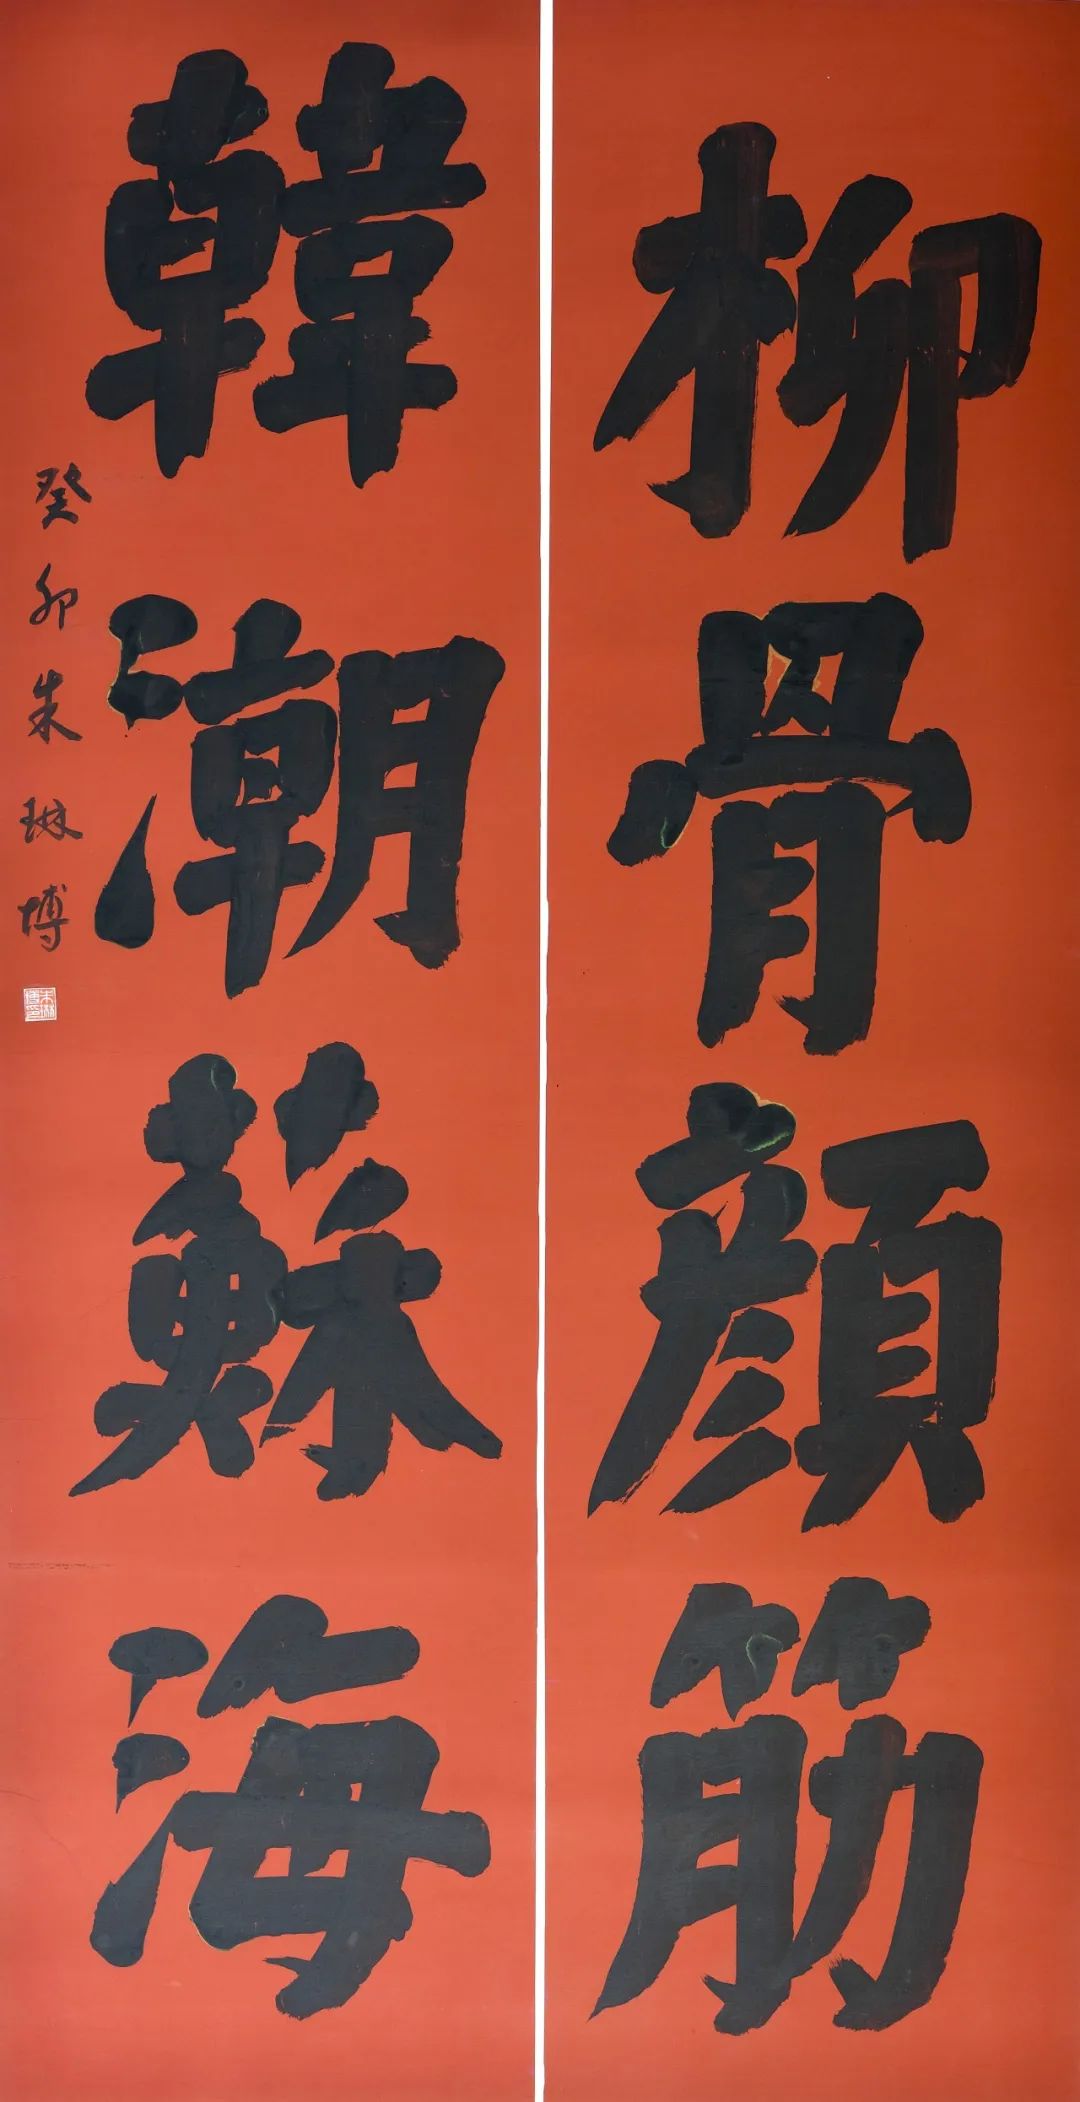 柳骨顔筋
韓潮蘇海
癸卯朱琳博
朱琳博印